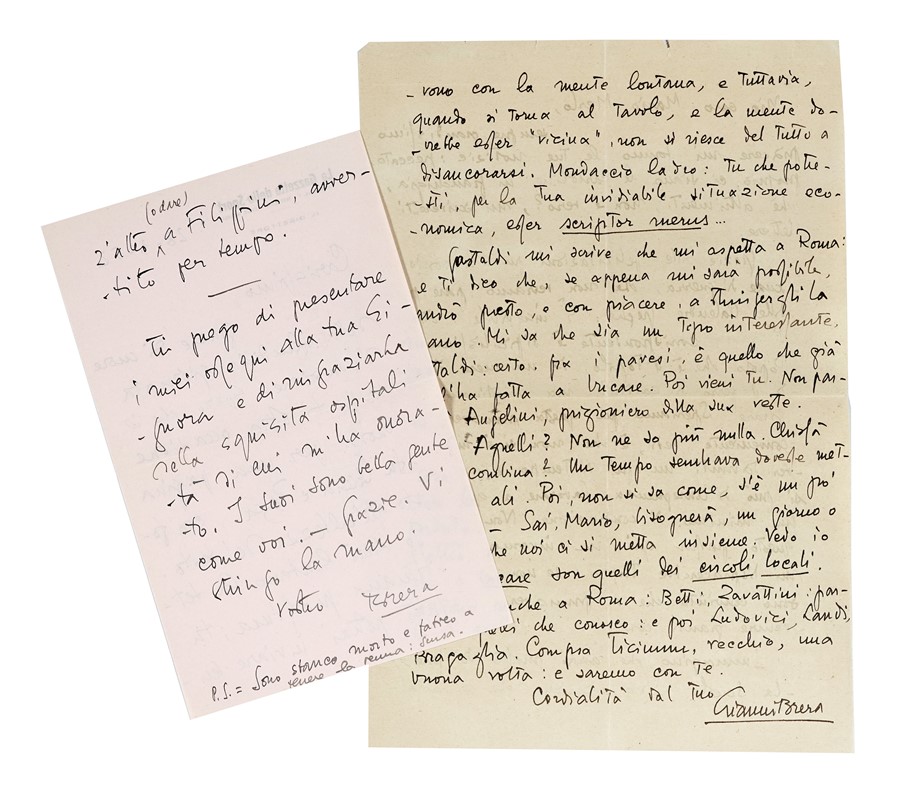 (o dare)
z'altro a Filippini, avver-
-tito per tempo.
Ti prego di presentare
i miei ossequi alla tua Si-
-gnora e di ringraziarla
della squisita ospitali
-tà di cui m'ha onora-
-to. I tuoi sono bella gente
come voi. - Grazie. Vi
stringo la mano.
Vostro Brera
P.S. = Sono stanco morto e fatico a
tenere la penna: scusa.
-vono con la mente lontana, e tuttavia,
quando si torna al tavolo, e la mente do-
-vrebbe esser "vicina", non si riesce del tutto a
disancorarsi. Mondaccio ladro: Tu che potre-
-sti, per la tua invidiabile situazione eco-
-nomica, esser scriptor merus...
Gastaldi mi scrive che mi aspetta a Roma:
e ti dico che, se appena mi sarà possibile,
andrò presto, e con piacere, a stringergli la
ano. Mi sa che sia un tipo interessante,
taldi: certo, fra i pavesi, è quello che già
l'ha fatta a bucare. Poi vieni Tu. Non par-
Angelini, prigioniero della sua veste.
Agnelli? Non ne so più nulla. Chissà
combina? Un tempo sembrava dovesse met-
ali. Poi, non si sa come, s'è un po'
Sai, Mario, bisognerà, un giorno o
he noi ci si metta insieme. Vedo io
care son quelli dei circoli locali.
nche a Roma: Betti, Zavattini: par-
che conosco: e poi Ludovici, Landi,
Bragaglia. Compra Ticinum, vecchio, una
buona volta: e saremo con te.
Cordialità dal tuo
Gianni Brera